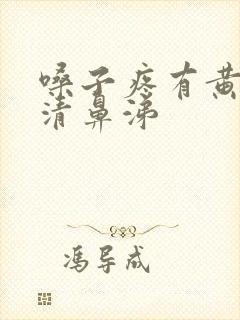 嗓子疼有黄
清鼻涕
冯导成